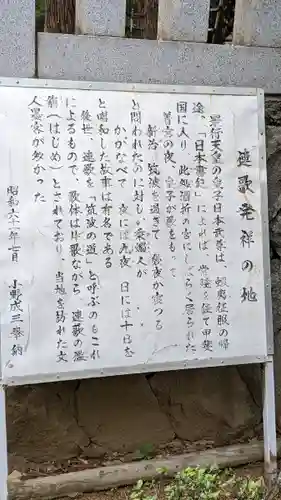 連歌発祥の地
景行天皇の皇子日本武尊は、蝦夷征服の帰
途、「日本書紀」によれば、常陸を経て甲斐
国に入り、此処酒折の宮にしばらく居られた
著宮の夜、皇子が歌をもって
新治 筑波を過ぎて 幾夜か宿つる
と問われたのに対し秉燭人が
かがなべて 夜には九夜 日には十日を
と唱和した故事は有名である
後世、連歌を「筑波の道」と呼ぶのもこれ
によるもので、歌体は片歌ながら、連歌の濫
觴(はじめ)とされており、当地を訪れた文
人墨客が多かった
昭和六十一年一月 小野成三奉納